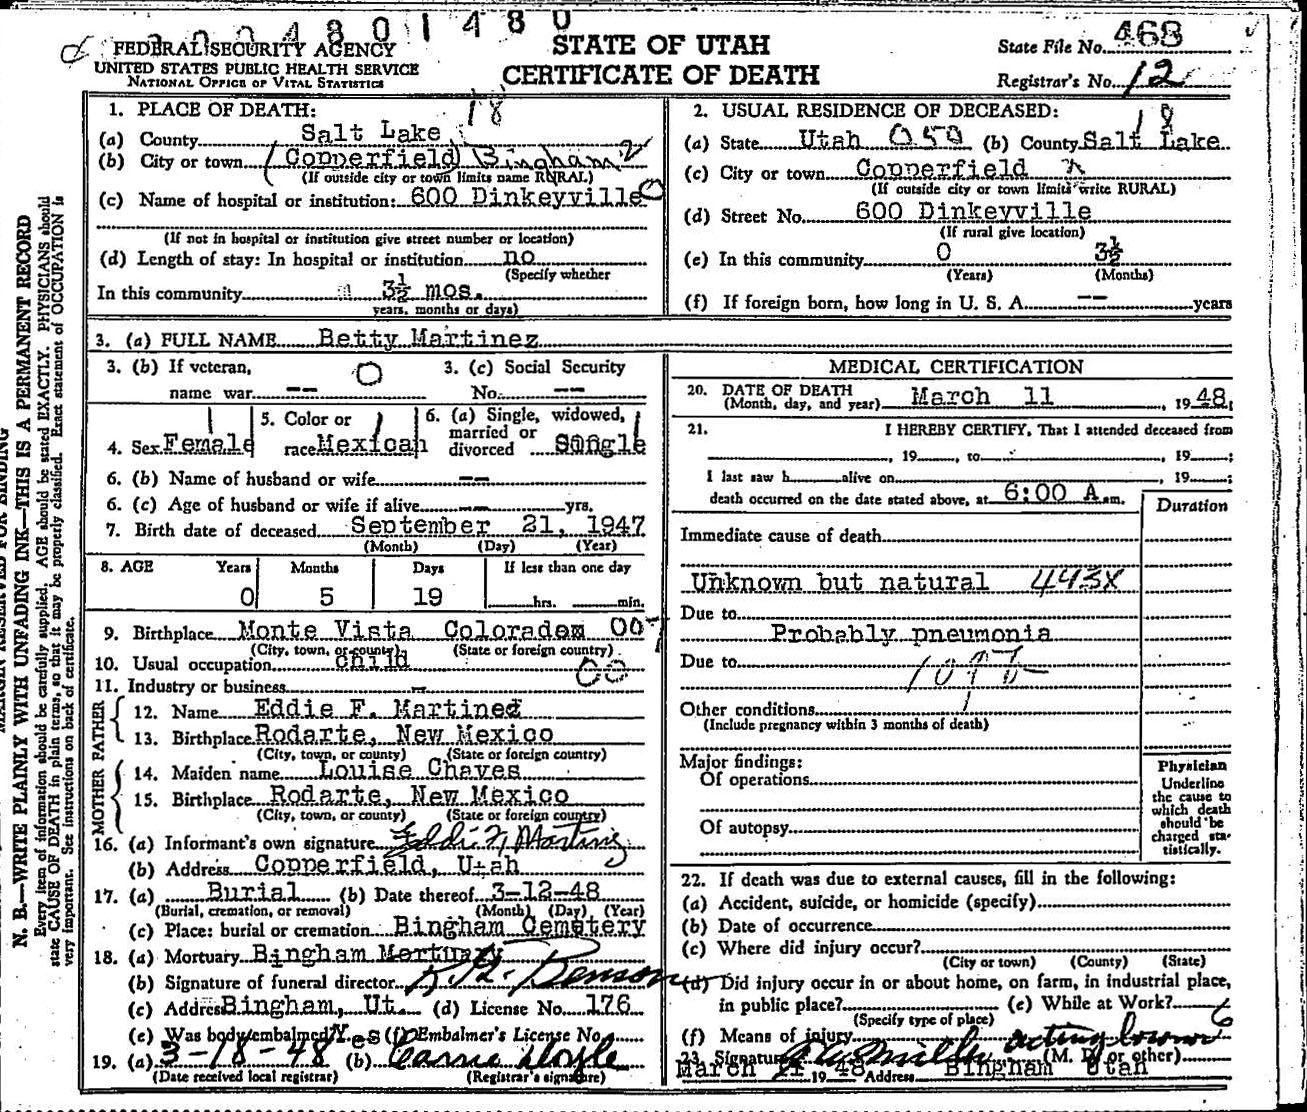 2004801480
FEDERAL SECURITY AGENCY
UNITED STATES PUBLIC HEALTH SERVICE
NATIONAL OFFICE OF VITAL STATISTICS
STATE OF UTAH
CERTIFICATE OF DEATH
State File No. 468
Registrar's No. 12
1. PLACE OF DEATH: 18
(a) County Salt Lake
(b) City or town (Copperfield) Bingham 2
(If outside city or town limits name RURAL)
(c) Name of hospital or institution: 600 Dinkeyville 0
(If not in hospital or institution give street number or location)
(d) Length of stay: In hospital or institution no
(Specify whether
In this community 3½ mos.
years, months or days)
2. USUAL RESIDENCE OF DECEASED:
18
(a) State Utah 050 (b) County Salt Lake
(c) City or town Copperfield
(If outside city or town limits write RURAL)
(d) Street No. 600 Dinkeyville
(If rural give location)
(e) In this community 0 3½
(Years) (Months)
(f) If foreign born, how long in U. S. A. -- years
3. (a) FULL NAME Betty Martinez
3. (b) If veteran, name war -- 0
3. (c) Social Security No. --
4. Sex Female
5. Color or race Mexican
6. (a) Single, widowed, married or divorced Single
6. (b) Name of husband or wife --
6. (c) Age of husband or wife if alive -- yrs.
7. Birth date of deceased September 21, 1947
(Month) (Day) (Year)
8. AGE Years Months Days If less than one day
0 5 19 hrs. min.
9. Birthplace Monte Vista Colorado 007
(City, town, or county) (State or foreign country)
10. Usual occupation child 00
11. Industry or business -
FATHER
12. Name Eddie F. Martinez
13. Birthplace Rodarte, New Mexico
(City, town, or county) (State or foreign country)
MOTHER
14. Maiden name Louise Chaves
15. Birthplace Rodarte, New Mexico
(City, town, or county) (State or foreign country)
16. (a) Informant's own signature Eddie F. Martinez
(b) Address Copperfield, Utah
17. (a) Burial (b) Date thereof 3-12-48
(Burial, cremation, or removal) (Month) (Day) (Year)
(c) Place: burial or cremation Bingham Cemetery
18. (a) Mortuary Bingham Mortuary
(b) Signature of funeral director Benson
(c) Address Bingham, Ut. (d) License No. 176
(e) Was body embalmed Yes (f) Embalmer's License No.
19. (a) 3-18-48 (b) Carrie Doyle
(Date received local registrar) (Registrar's signature)
MEDICAL CERTIFICATION
20. DATE OF DEATH
(Month, day, and year) March 11, 1948
21. I HEREBY CERTIFY, That I attended deceased from
, 19 , to , 19 ;
I last saw h alive on , 19 ;
death occurred on the date stated above, at 6:00 A m.
Duration
Immediate cause of death
Unknown but natural 493X
Due to
Probably pneumonia
Due to
Other conditions
(Include pregnancy within 3 months of death)
Major findings:
Of operations
Of autopsy
Physician
Underline
the cause to
which death
should be
charged sta-
tistically.
22. If death was due to external causes, fill in the following:
(a) Accident, suicide, or homicide (specify)
(b) Date of occurrence
(c) Where did injury occur?
(City or town) (County) (State)
(d) Did injury occur in or about home, on farm, in industrial place,
in public place? (e) While at Work?
(Specify type of place)
(f) Means of injury
23. Signature acting (M. D. or other)
March 1948 Address Bingham Utah
N. B.—WRITE PLAINLY WITH UNFADING INK—THIS IS A PERMANENT RECORD
Every item of information should be carefully supplied. AGE should be stated EXACTLY. PHYSICIANS should
state CAUSE OF DEATH in plain terms, so that it may be properly classified. Exact statement of OCCUPATION is
very important. See instructions on back of certificate.